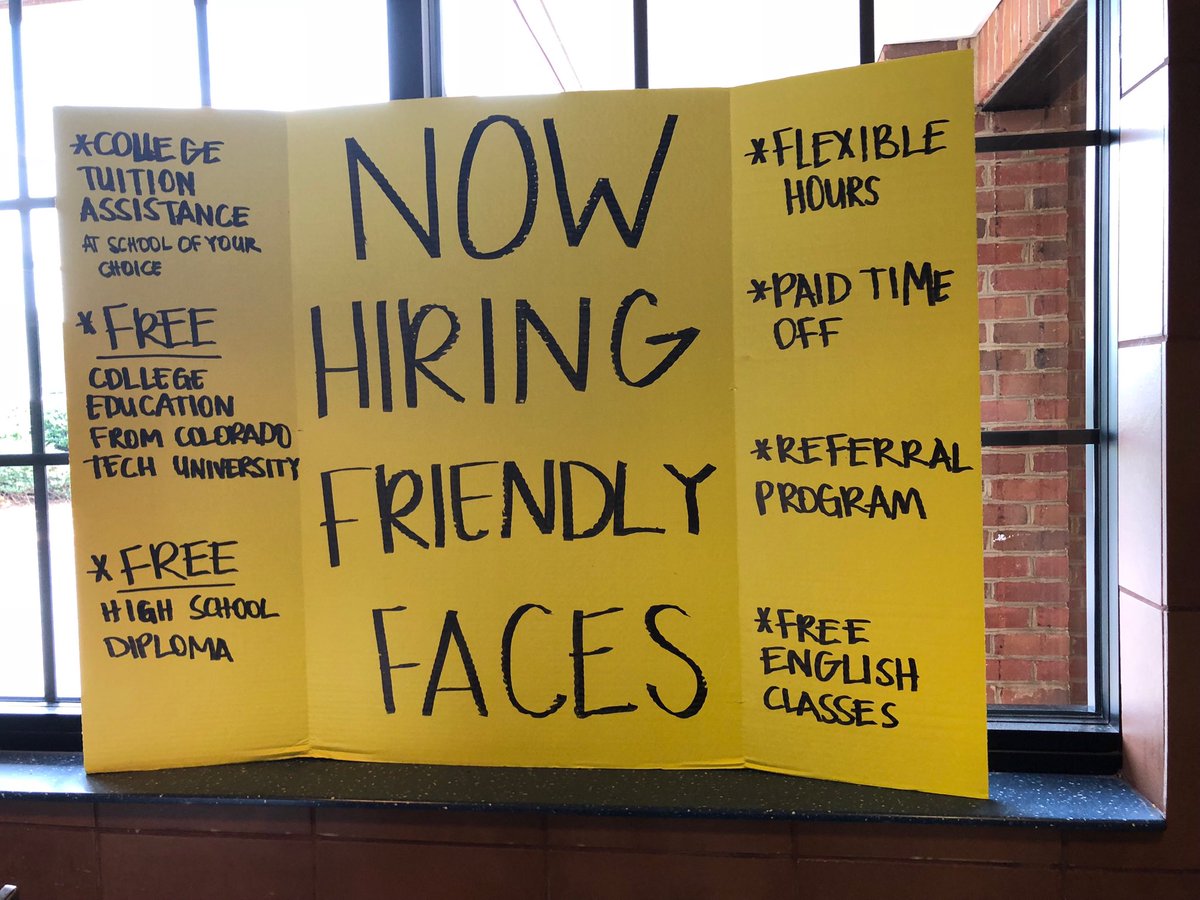 *COLLEGE
TUITION
ASSISTANCE
AT SCHOOL OF YOUR
CHOICE
*FREE
COLLEGE
EDUCATION
FROM COLORADO
TECH UNIVERSITY
*FREE
HIGH SCHOOL
DIPLOMA
NOW
HIRING
FRIENDLY
FACES
*FLEXIBLE
HOURS
*PAID TIME
OFF
*REFERRAL
PROGRAM
*FREE
ENGLISH
CLASSES